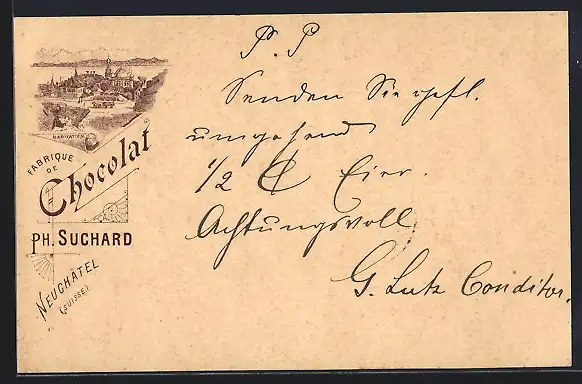 FABRIQUE
DE
Chocolat
PH. SUCHARD
NEUCHÂTEL
(SUISSE)
P. P
Senden Sie gefl.
umgehend
1/2 Ctr Eier.
Achtungsvoll
G. Lutz Conditor.